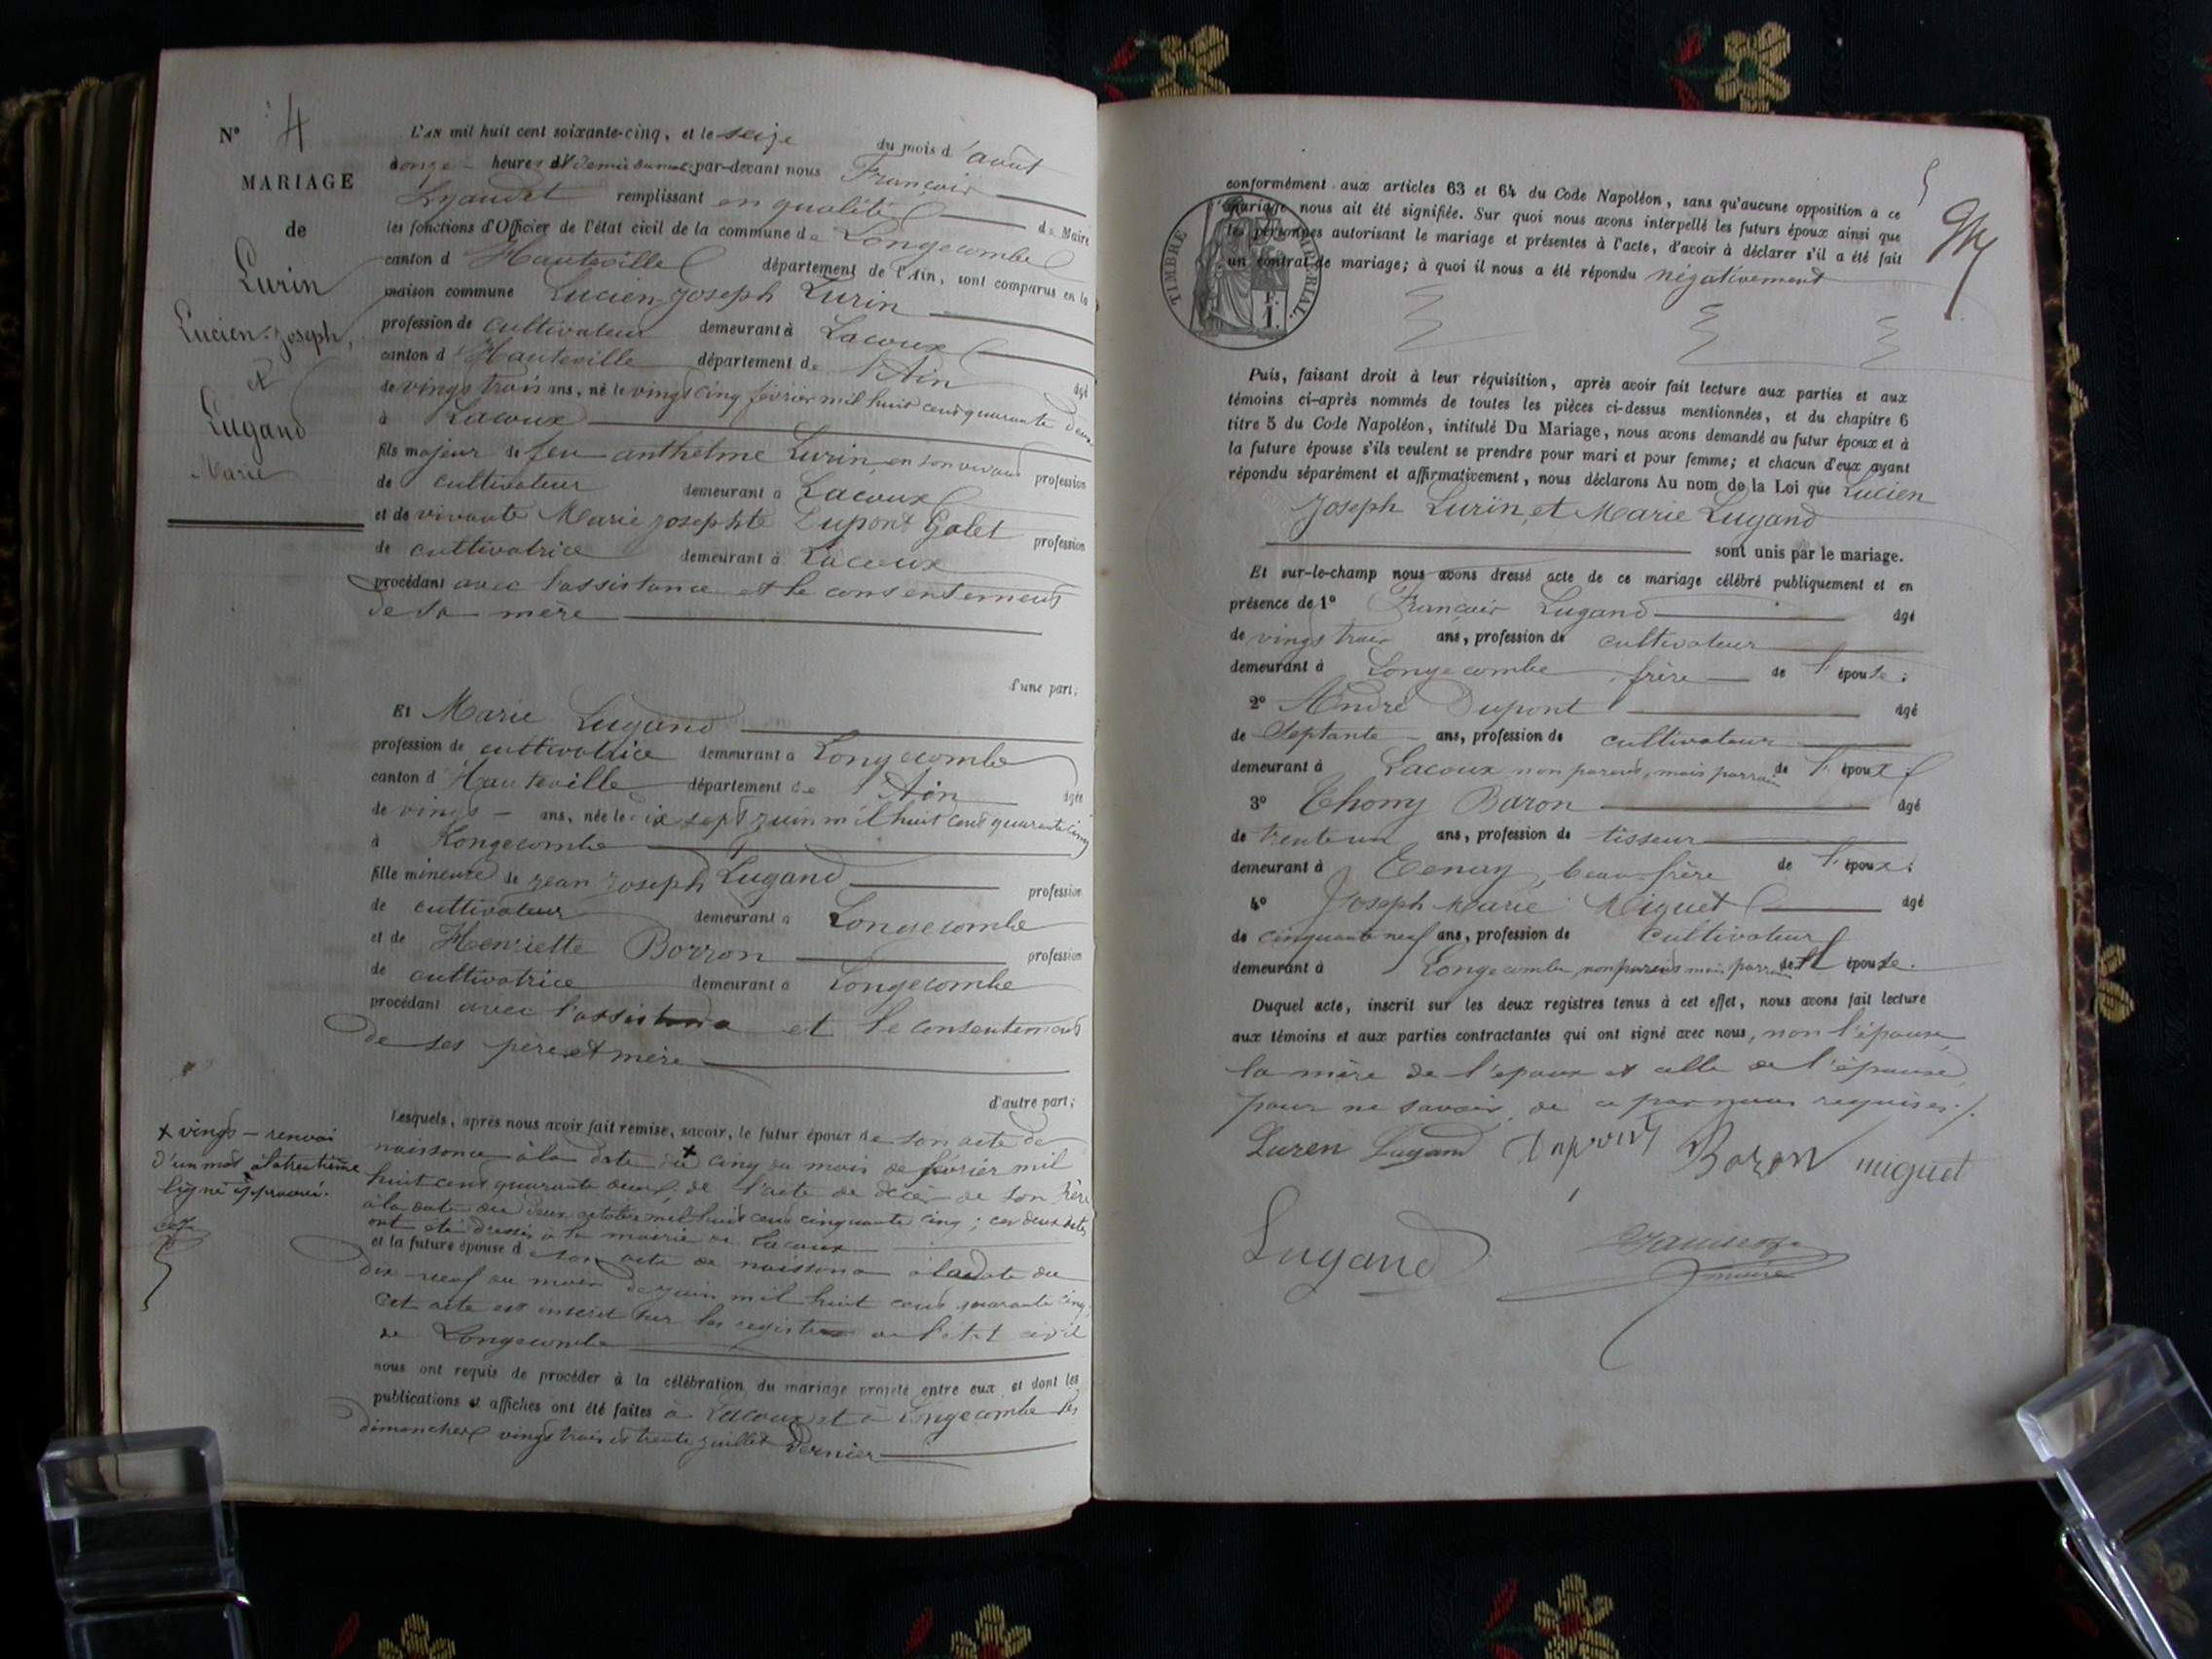 N° 4
MARIAGE
de
Lurin
Lucien-Joseph,
et
Lugand
Marie
L'AN mil huit cent soixante-cinq, et le seize du mois d'août
onze heures et demie du mat. par-devant nous François
Lyaudet remplissant en qualité de Maire
les fonctions d'Officier de l'état civil de la commune de Longecombe
canton d'Hauteville département de l'Ain, sont comparus en la
maison commune Lucien-Joseph Lurin
profession de cultivateur demeurant à Lacoux
canton d'Hauteville département de l'Ain âgé
de vingt trois ans, né le vingt cinq février mil huit cent quarante deux
à Lacoux
fils majeur de feu anthelme Lurin, en son vivant profession
de cultivateur demeurant à Lacoux
et de vivante Marie josephte Dupont Galet profession
de cultivatrice demeurant à Lacoux
procédant avec l'assistance et le consentement
de sa mère
d'une part;
Et Marie Lugand
profession de cultivatrice demeurant à Longecombe
canton d'Hauteville département de l'Ain âgée
de vingt ans, née le dix sept juin mil huit cent quarante cinq
à Longecombe
fille mineure de jean joseph Lugand profession
de cultivateur demeurant à Longecombe
et de Henriette Borron profession
de cultivatrice demeurant à Longecombe
procédant avec l'assistance et le consentement
de ses père et mère
d'autre part;
Lesquels, après nous avoir fait remise, savoir, le futur époux de son acte de
naissance à la date du x cinq du mois de février mil
huit cent quarante deux; de l'acte de décès de son père
à la date du deux octobre mil huit cent cinquante cinq; ces deux actes
ont été dressés à la mairie de Lacoux
et la future épouse de son acte de naissance à la date du
dix neuf du mois de juin mil huit cent quarante cinq,
cet acte est inscrit sur les registres de l'état civil
de Longecombe
nous ont requis de procéder à la célébration du mariage projeté entre eux et dont les
publications et affiches ont été faites à Lacoux et à Longecombe les
dimanches vingt trois et trente juillet dernier
x vingt — renvoi
d'un mot à la trentième
ligne approuvé.
conformément aux articles 63 et 64 du Code Napoléon, sans qu'aucune opposition à ce
mariage nous ait été signifiée. Sur quoi nous avons interpellé les futurs époux ainsi que
les personnes autorisant le mariage et présentes à l'acte, d'avoir à déclarer s'il a été fait
un contrat de mariage; à quoi il nous a été répondu négativement
TIMBRE IMPÉRIAL
1 F.
Puis, faisant droit à leur réquisition, après avoir fait lecture aux parties et aux
témoins ci-après nommés de toutes les pièces ci-dessus mentionnées, et du chapitre 6
titre 5 du Code Napoléon, intitulé Du Mariage, nous avons demandé au futur époux et à
la future épouse s'ils veulent se prendre pour mari et pour femme; et chacun d'eux ayant
répondu séparément et affirmativement, nous déclarons Au nom de la Loi que Lucien
Joseph Lurin, et Marie Lugand
sont unis par le mariage.
Et sur-le-champ nous avons dressé acte de ce mariage célébré publiquement et en
présence de 1° François Lugand âgé
de vingt trois ans, profession de cultivateur
demeurant à Longecombe, frère de l'épouse;
2° André Dupont âgé
de Septante ans, profession de cultivateur
demeurant à Lacoux non parent, mais parrain de l'époux;
3° Thomy Baron âgé
de trente un ans, profession de tisseur
demeurant à Tenay, beau-frère de l'époux;
4° Joseph Marie Miguet âgé
de cinquante neuf ans, profession de cultivateur
demeurant à Longecombe, non parent mais parrain de l'épouse.
Duquel acte, inscrit sur les deux registres tenus à cet effet, nous avons fait lecture
aux témoins et aux parties contractantes qui ont signé avec nous, non l'épouse,
la mère de l'époux et celle de l'épouse,
pour ne savoir, de ce par nous requises./.
Luren Lugand Dupont Baron miguet
Lugand Lyaudet
maire